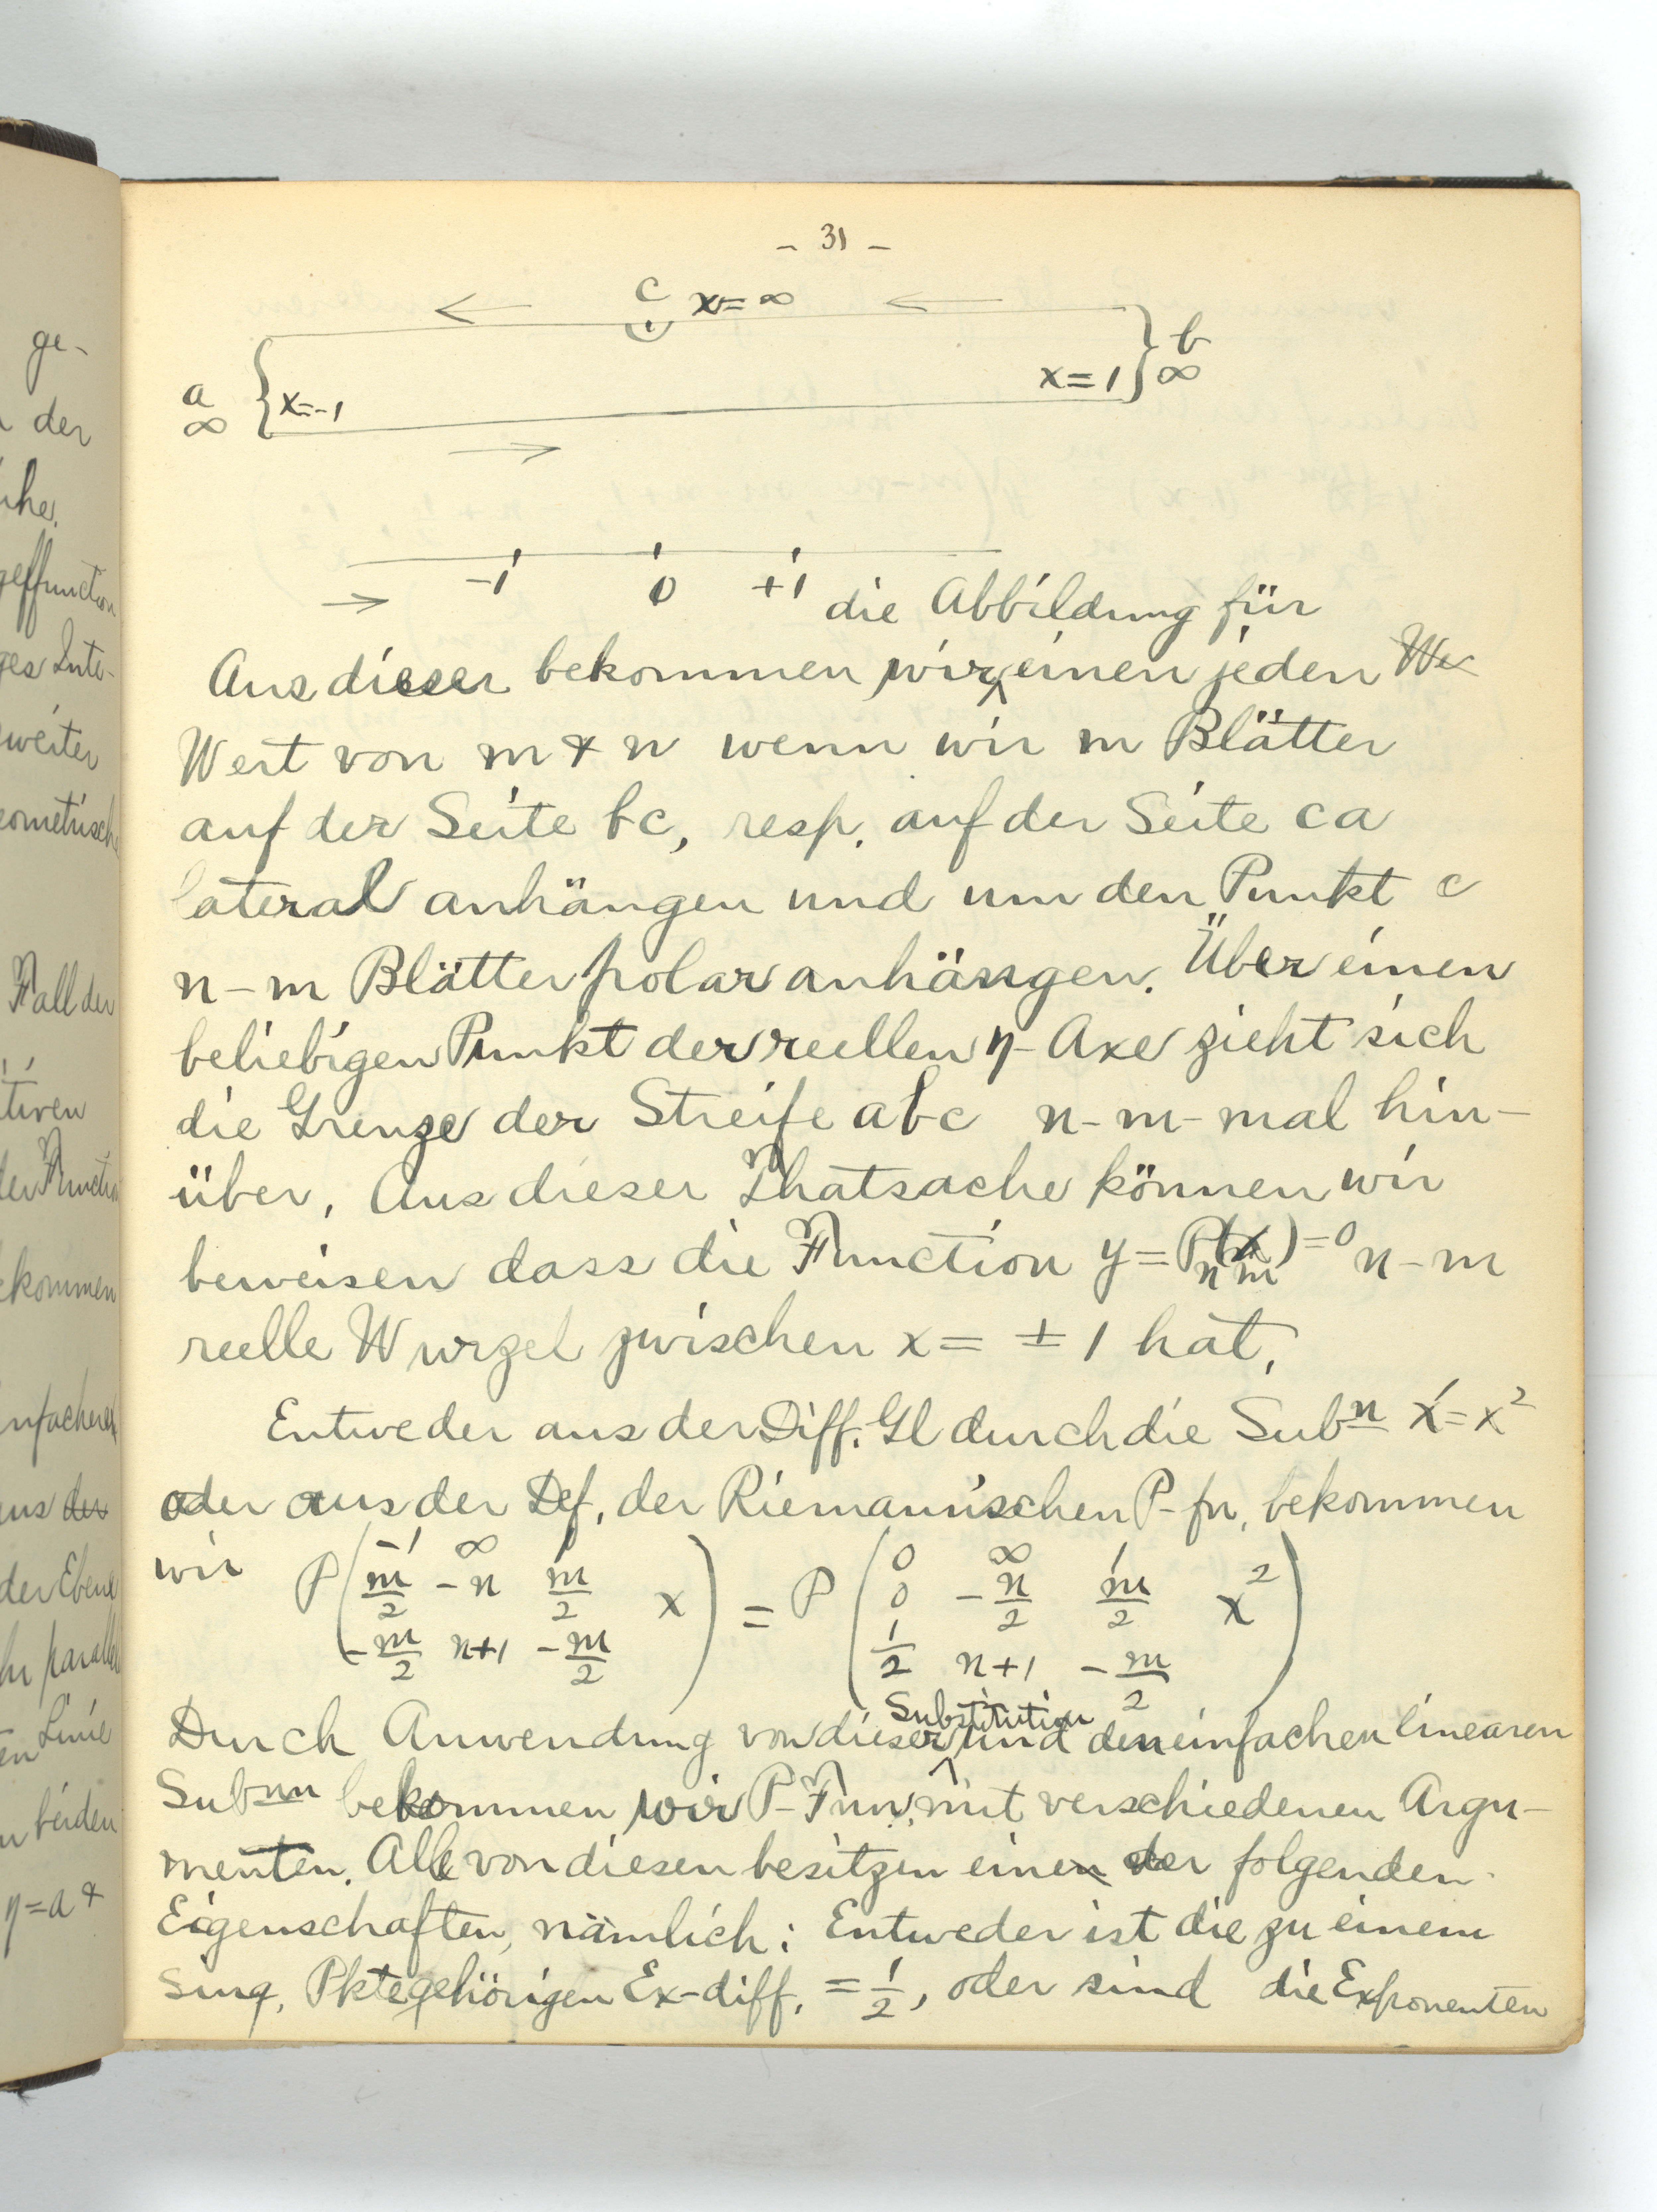 - 31 -
c x = ∞
a ∞ { x = -1
x = 1 } b ∞
-1 0 +1
die Abbildung für
Aus dieser bekommen wir einen jeden We
Wert von m & n wenn wir m Blätter
auf der Seite bc, resp. auf der Seite ca
lateral anhängen und um den Punkt c
n-m Blätter polar anhängen. Über einen
beliebigen Punkt der reellen η-Axe zieht sich
die Grenze der Streife abc n-m-mal hin-
über. Aus dieser Thatsache können wir
beweisen dass die Function y = P_{nm}(x) = 0 n-m
reelle Wurzel zwischen x = ± 1 hat.
Entweder aus der Diff. Gl durch die Subn x' = x²
oder aus der Def. der Riemann'schen P-fn. bekommen
wir P( -1 ∞ 1
m/2 -n m/2 x
-m/2 n+1 -m/2 ) = P( 0 ∞ 1
0 -n/2 m/2 x²
1/2 n+1 -m/2 )
Substitution
Durch Anwendung von dieser und den einfachen linearen
Subnn bekommen wir P-Fnn. mit verschiedenen Argu-
menten. Alle von diesen besitzen einen der folgenden
Eigenschaften, nämlich: Entweder ist die zu einem
sing. Pkte gehörigen Ex-diff. = 1/2, oder sind die Exponenten
ge-
der
geffunction
ges Inte-
zweiter
geometrisch
Fall der
tiven
der Function
bekommen
einfacheren
aus der
der Ebene
Linie
beiden
η = a &